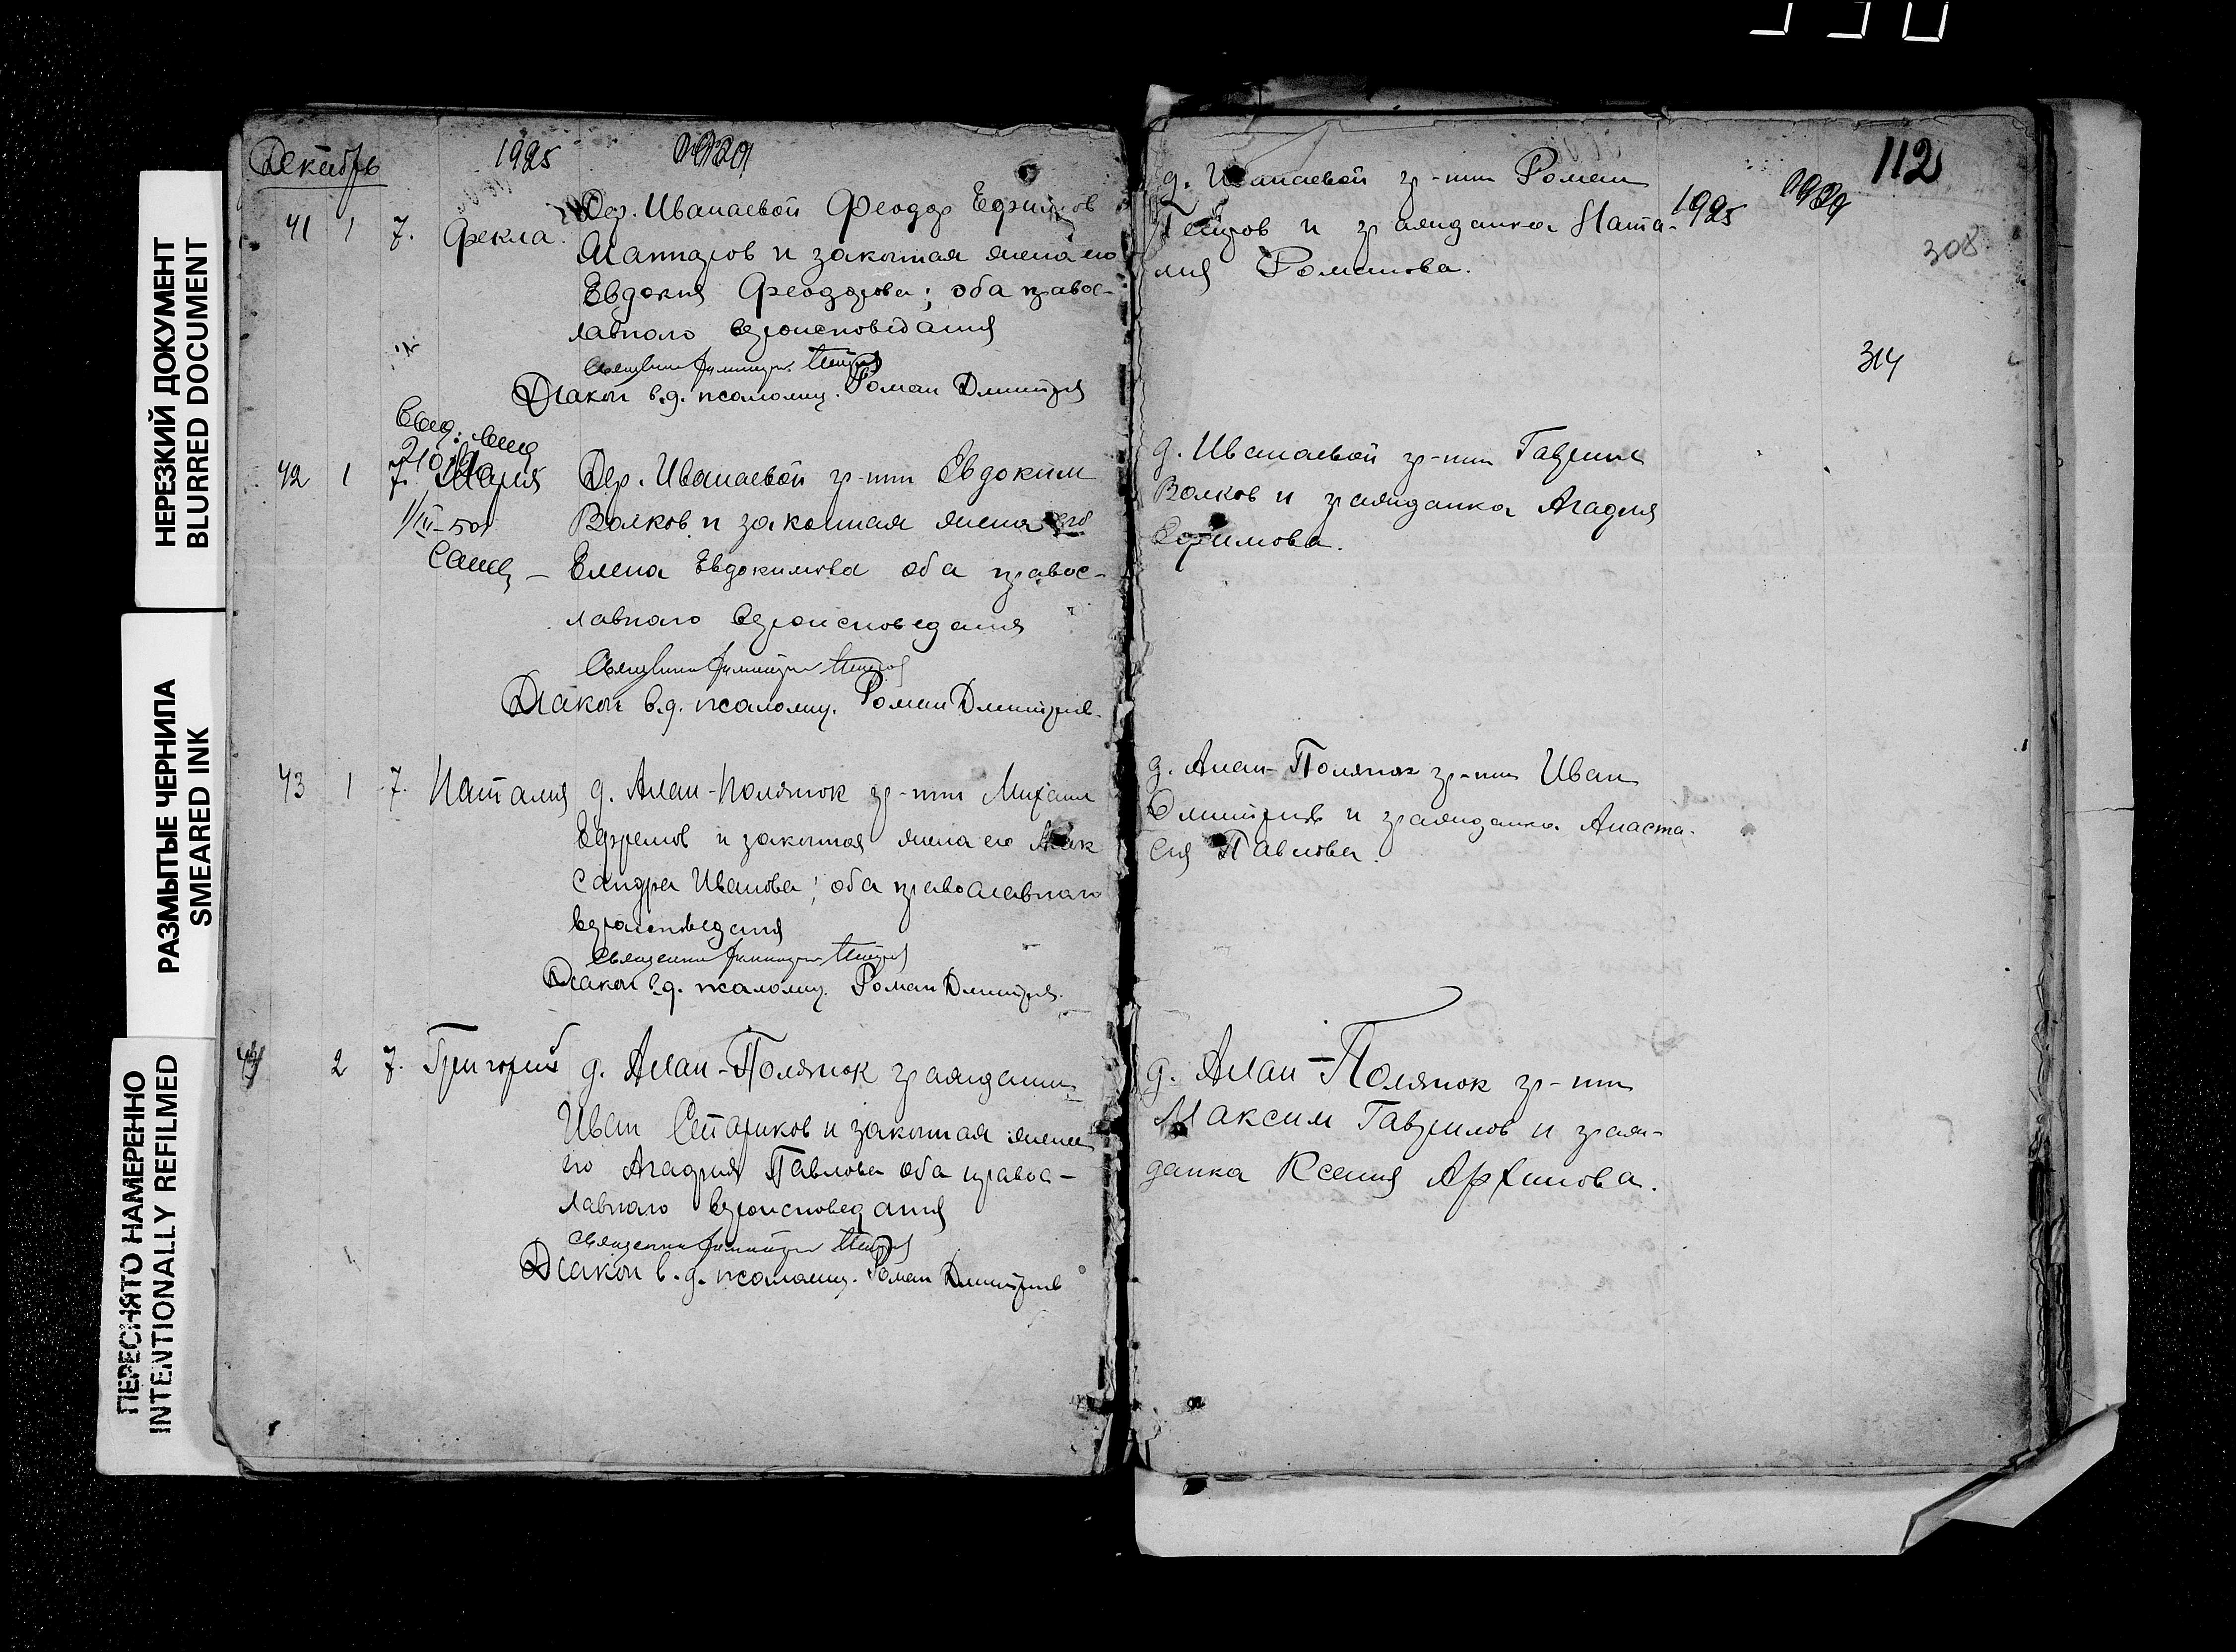 НЕРЕЗКИЙ ДОКУМЕНТ
BLURRED DOCUMENT
РАЗМЫТЫЕ ЧЕРНИЛА
SMEARED INK
ПЕРЕСНЯТО НАМЕРЕННО
INTENTIONALLY REFILMED
Декабрь 1925
41 1 7. Фекла. Дер. Иванаевой Феодор
и законная жена его
Евдокия Феодорова; оба правос-
лавного вероисповедания
Священник Димитрий Петров
Диакон в.д. псаломщ. Роман Дмитриев
42 1 7. Мария Дер. Иванаевой гр-нин Евдоким
1/III-50г Волков и законная жена его
Елена Евдокимова оба правос-
лавного вероисповедания
Священник Димитрий Петров
Диакон в.д. псаломщ. Роман Дмитриев.
43 1 7. Наталия д. Алан-Полянок гр-нин Михаил
Ефремов и законная жена его Алек
сандра Иванова; оба православного
вероисповедания
Священник Димитрий Петров
Диакон в.д. псаломщ. Роман Дмитриев.
44 2 7. Григорий д. Алан-Полянок гражданин
Иван Стариков и законная жена
его Агафия Павлова оба правос-
лавного вероисповедания
Священник Димитрий Петров
Диакон в.д. псаломщ. Роман Дмитриев
112
д. Иванаевой гр-нин Роман
Петров и гражданка Ната- 1925
лия Романова.
308
314
д. Иванаевой гр-нин Гавриил
Волков и гражданка Агафия
Ефимова.
д. Алан-Полянок гр-нин Иван
Дмитриев и гражданка Анаста-
сия Павлова.
д. Алан-Полянок гр-нин
Максим Гаврилов и граж-
данка Ксения Архипова.